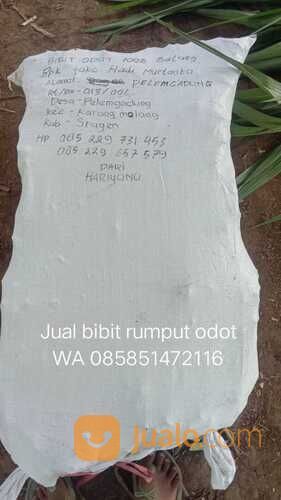 BIBIT ODOT 1000 Batang
Bpk Joko Hadi Murtanto
Alamat - PELEMGADUNG
Rt/Rw - 013/004
Desa - Pelemgadung
Kec - Karang malang
Kab - Sragen
HP 085 229 731 453
085 229 657 579
DARI
HARIYONO
Jual bibit rumput odot
WA 085851472116
jualo.com